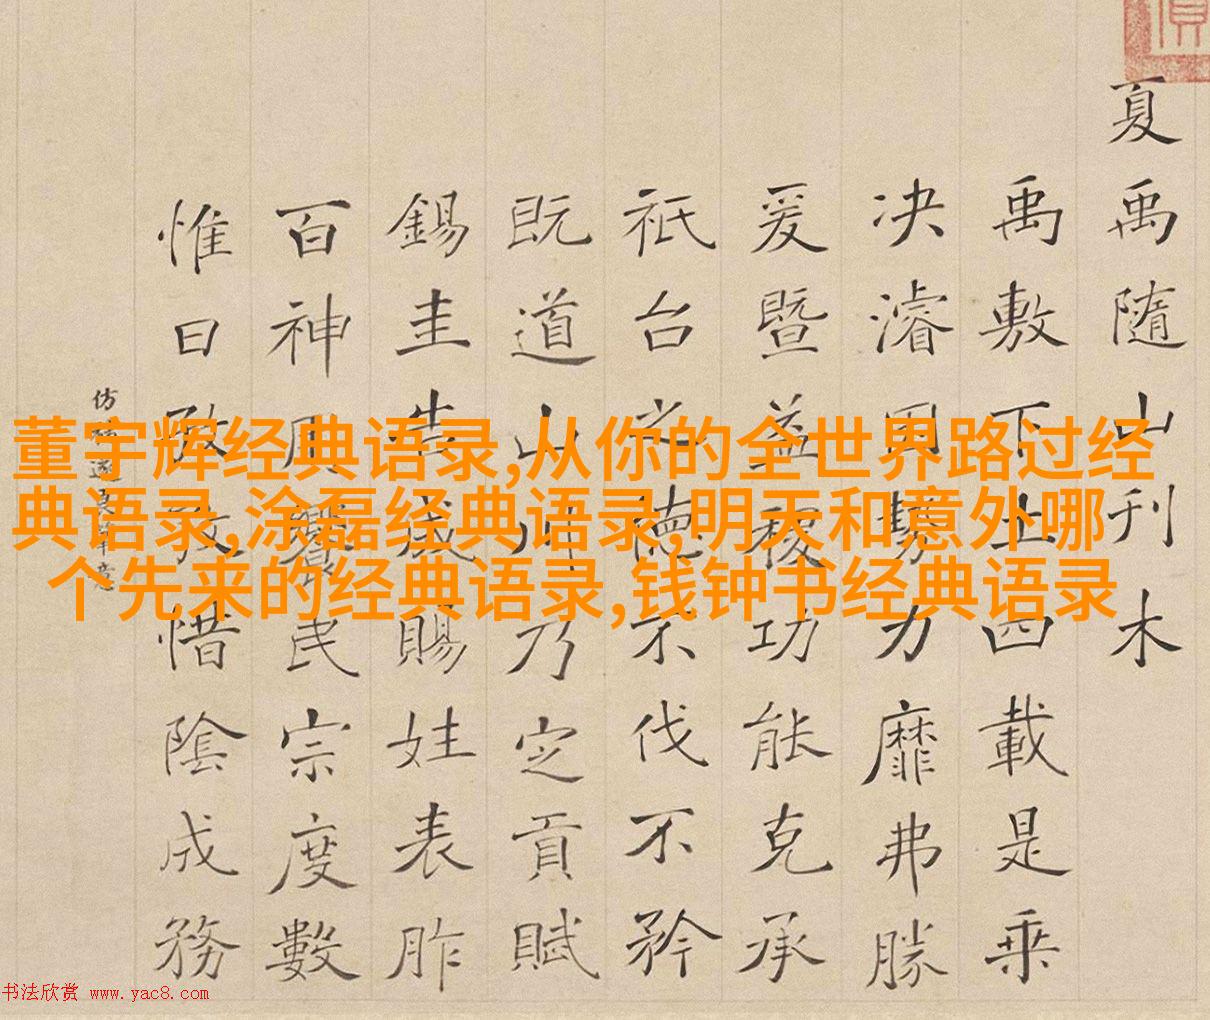 夏禹隨山刊木
禹敷下土四載是乘
决濬因勢力靡弗勝
爰暨益稷功能克承
祇台之德不伐不矜
既道山川乃定貢賦
錫圭告成賜姓表胙
百神用饗民宗度數
惟日孜惜陰成務
仿遂良筆意
董宇辉经典语录,从你的全世界路过经
典语录,涂磊经典语录,明天和意外哪
个先来的经典语录,钱钟书经典语录
书法欣赏 www.yac8.com